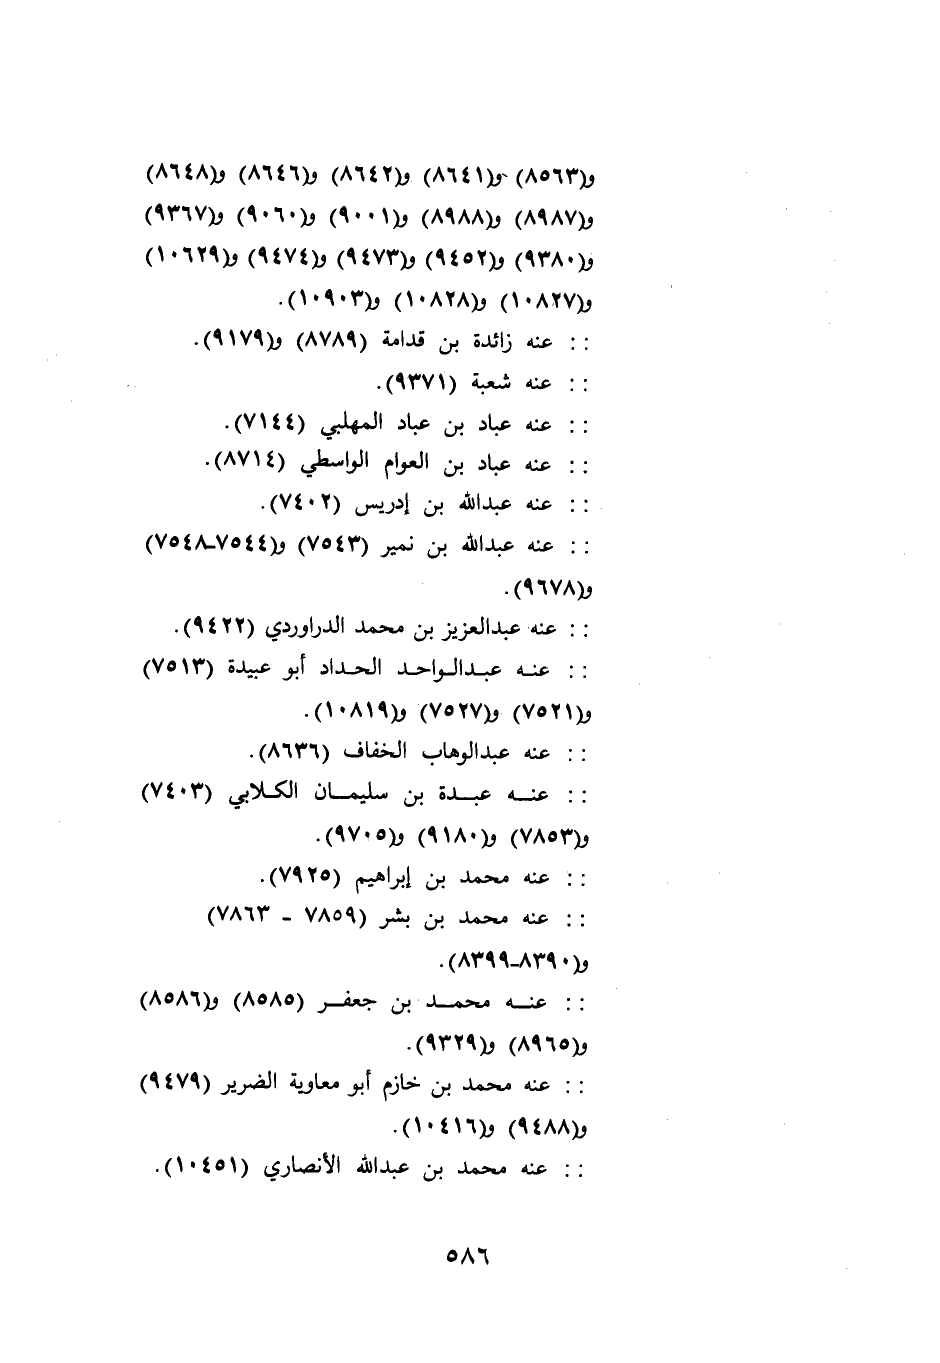 و(٨٥٦٣) و(٨٦٤١) و(٨٦٤٢) و(٨٦٤٦) و(٨٦٤٨)
و(٨٩٨٧) و(٨٩٨٨) و(٩٠٠١) و(٩٠٦٠) و(٩٣٦٧)
و(٩٣٨٠) و(٩٤٥٢) و(٩٤٧٣) و(٩٤٧٤) و(١٠٦٢٩)
و(١٠٨٢٧) و(١٠٨٢٨) و(١٠٩٠٣).
:: عنه زائدة بن قدامة (٨٧٨٩) و(٩١٧٩).
:: عنه شعبة (٩٣٧١).
:: عنه عباد بن عباد المهلبي (٧١٤٤).
:: عنه عباد بن العوام الواسطي (٨٧١٤).
:: عنه عبدالله بن إدريس (٧٤٠٢).
:: عنه عبدالله بن نمير (٧٥٤٣) و(٧٥٤٤-٧٥٤٨)
و(٩٦٧٨).
:: عنه عبدالعزيز بن محمد الدراوردي (٩٤٢٢).
:: عنه عبدالواحد الحداد أبو عبيدة (٧٥١٣)
و(٧٥٢١) و(٧٥٢٧) و(١٠٨١٩).
:: عنه عبدالوهاب الخفاف (٨٦٣٦).
:: عنه عبدة بن سليمان الكلابي (٧٤٠٣)
و(٧٨٥٣) و(٩١٨٠) و(٩٧٠٥).
:: عنه محمد بن إبراهيم (٧٩٢٥).
:: عنه محمد بن بشر (٧٨٥٩ - ٧٨٦٣)
و(٨٣٩٠-٨٣٩٩).
:: عنه محمد بن جعفر (٨٥٨٥) و(٨٥٨٦)
و(٨٩٦٥) و(٩٣٢٩).
:: عنه محمد بن خازم أبو معاوية الضرير (٩٤٧٩)
و(٩٤٨٨) و(١٠٤١٦).
:: عنه محمد بن عبدالله الأنصاري (١٠٤٥١).
٥٨٦